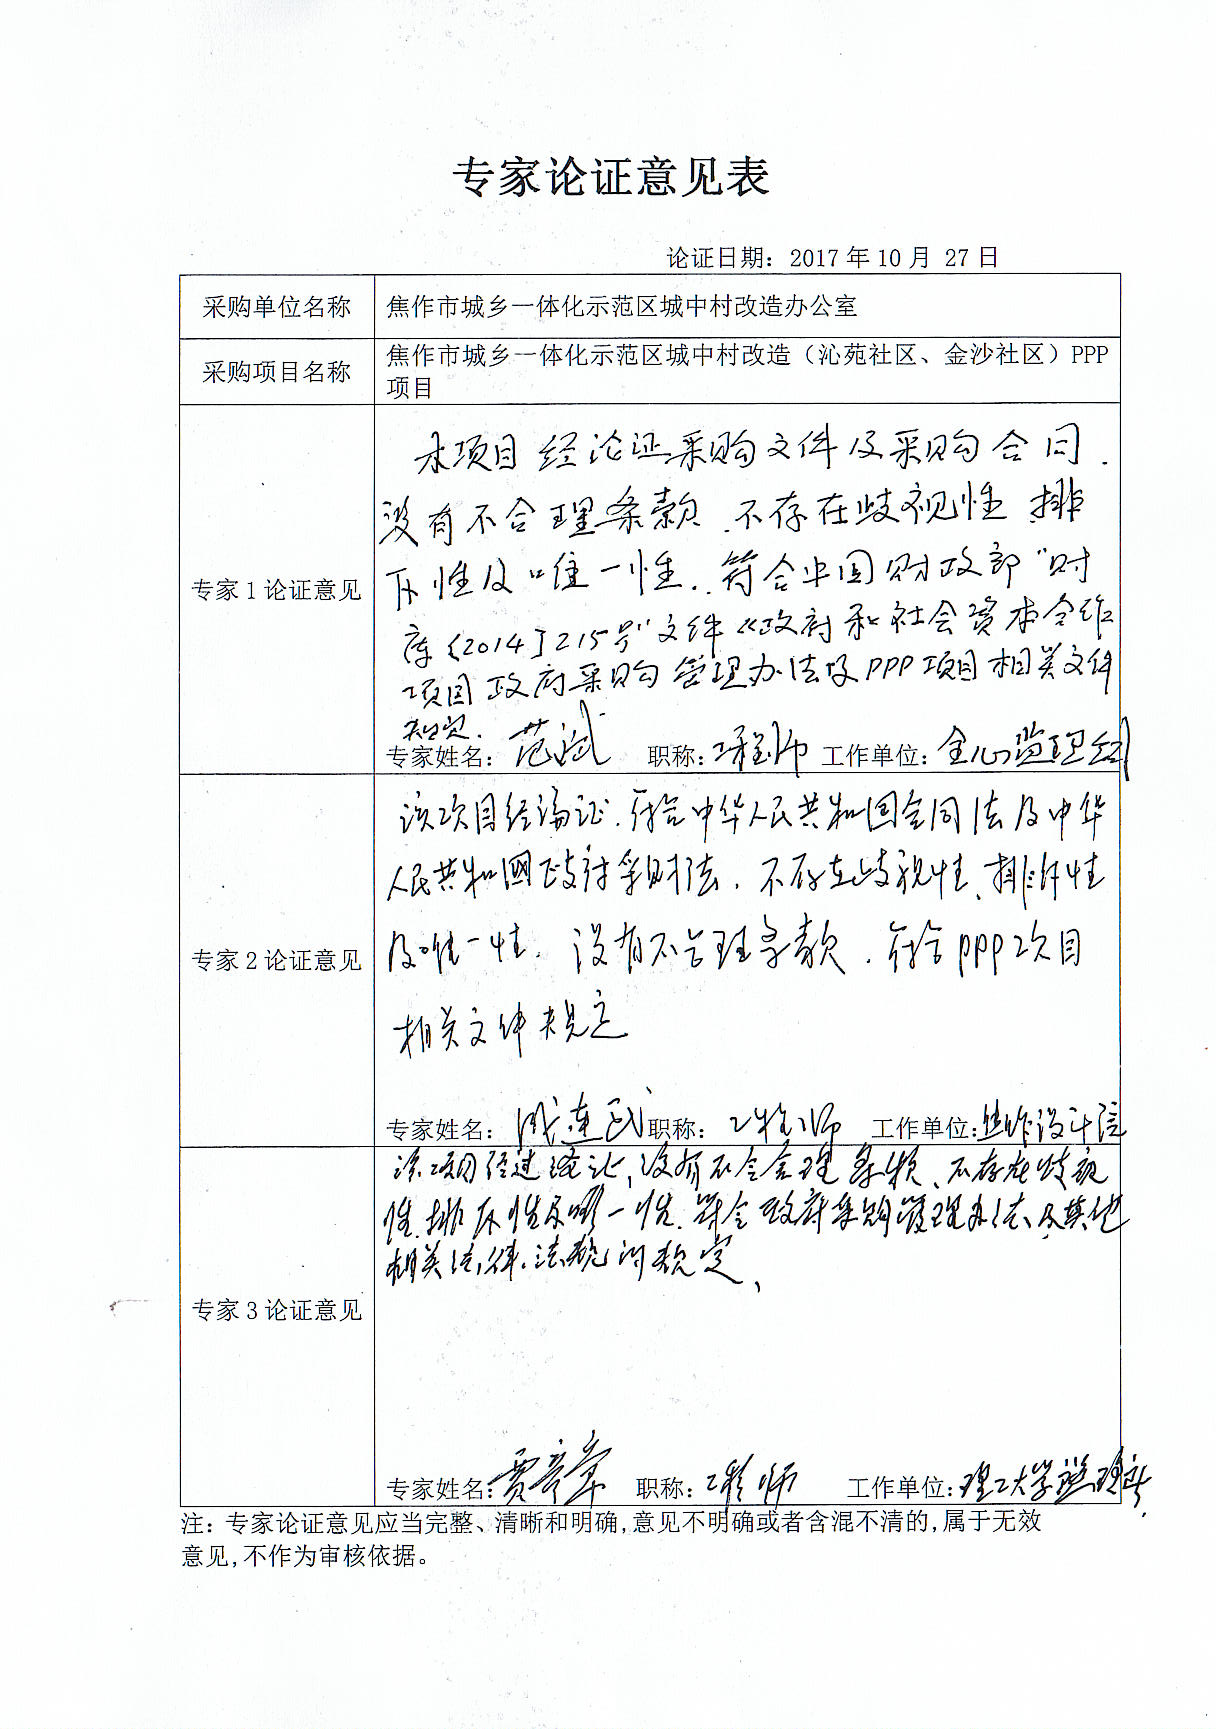 专家论证意见表
论证日期：2017年10月 27日
采购单位名称
焦作市城乡一体化示范区城中村改造办公室
采购项目名称
焦作市城乡一体化示范区城中村改造（沁苑社区、金沙社区）PPP
项目
专家1论证意见
本项目经论证采购文件及采购合同.
没有不合理条款.不存在歧视性.排
斥性及唯一性.符合中国财政部"财
库[2014]215号"文件《政府和社会资本合作
项目政府采购管理办法及PPP项目相关文件
规定.
专家姓名：范斌 职称：工程师 工作单位：监理公司
专家2论证意见
该项目经论证.符合中华人民共和国合同法及中华
人民共和国政府采购法.不存在歧视性、排斥性
及唯一性.没有不合理条款.符合PPP项目
相关文件规定
专家姓名：连 职称：工程师 工作单位：焦作设计院
专家3论证意见
该项目经过论证,没有不合理条款、不存在歧视
性.排斥性及唯一性.符合政府采购管理办法及其他
相关法律.法规的规定、
专家姓名：贾 职称：工程师 工作单位：理工大学监理
注：专家论证意见应当完整、清晰和明确,意见不明确或者含混不清的,属于无效
意见,不作为审核依据。